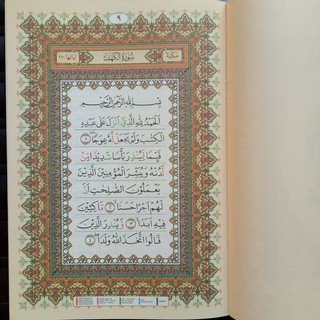 ٩
مكية سورة الكهف آياتها ١١٠
بِسْمِ اللَّهِ الرَّحْمَٰنِ الرَّحِيمِ
الْحَمْدُ لِلَّهِ الَّذِي أَنْزَلَ عَلَىٰ عَبْدِهِ
الْكِتَٰبَ وَلَمْ يَجْعَلْ لَهُ عِوَجًا ١
قَيِّمًا لِيُنْذِرَ بَأْسًا شَدِيدًا مِنْ
لَدُنْهُ وَيُبَشِّرَ الْمُؤْمِنِينَ الَّذِينَ
يَعْمَلُونَ الصَّٰلِحَٰتِ أَنَّ
لَهُمْ أَجْرًا حَسَنًا ٢ مَاكِثِينَ
فِيهِ أَبَدًا ٣ وَيُنْذِرَ الَّذِينَ
قَالُوا اتَّخَذَ اللَّهُ وَلَدًا ٤